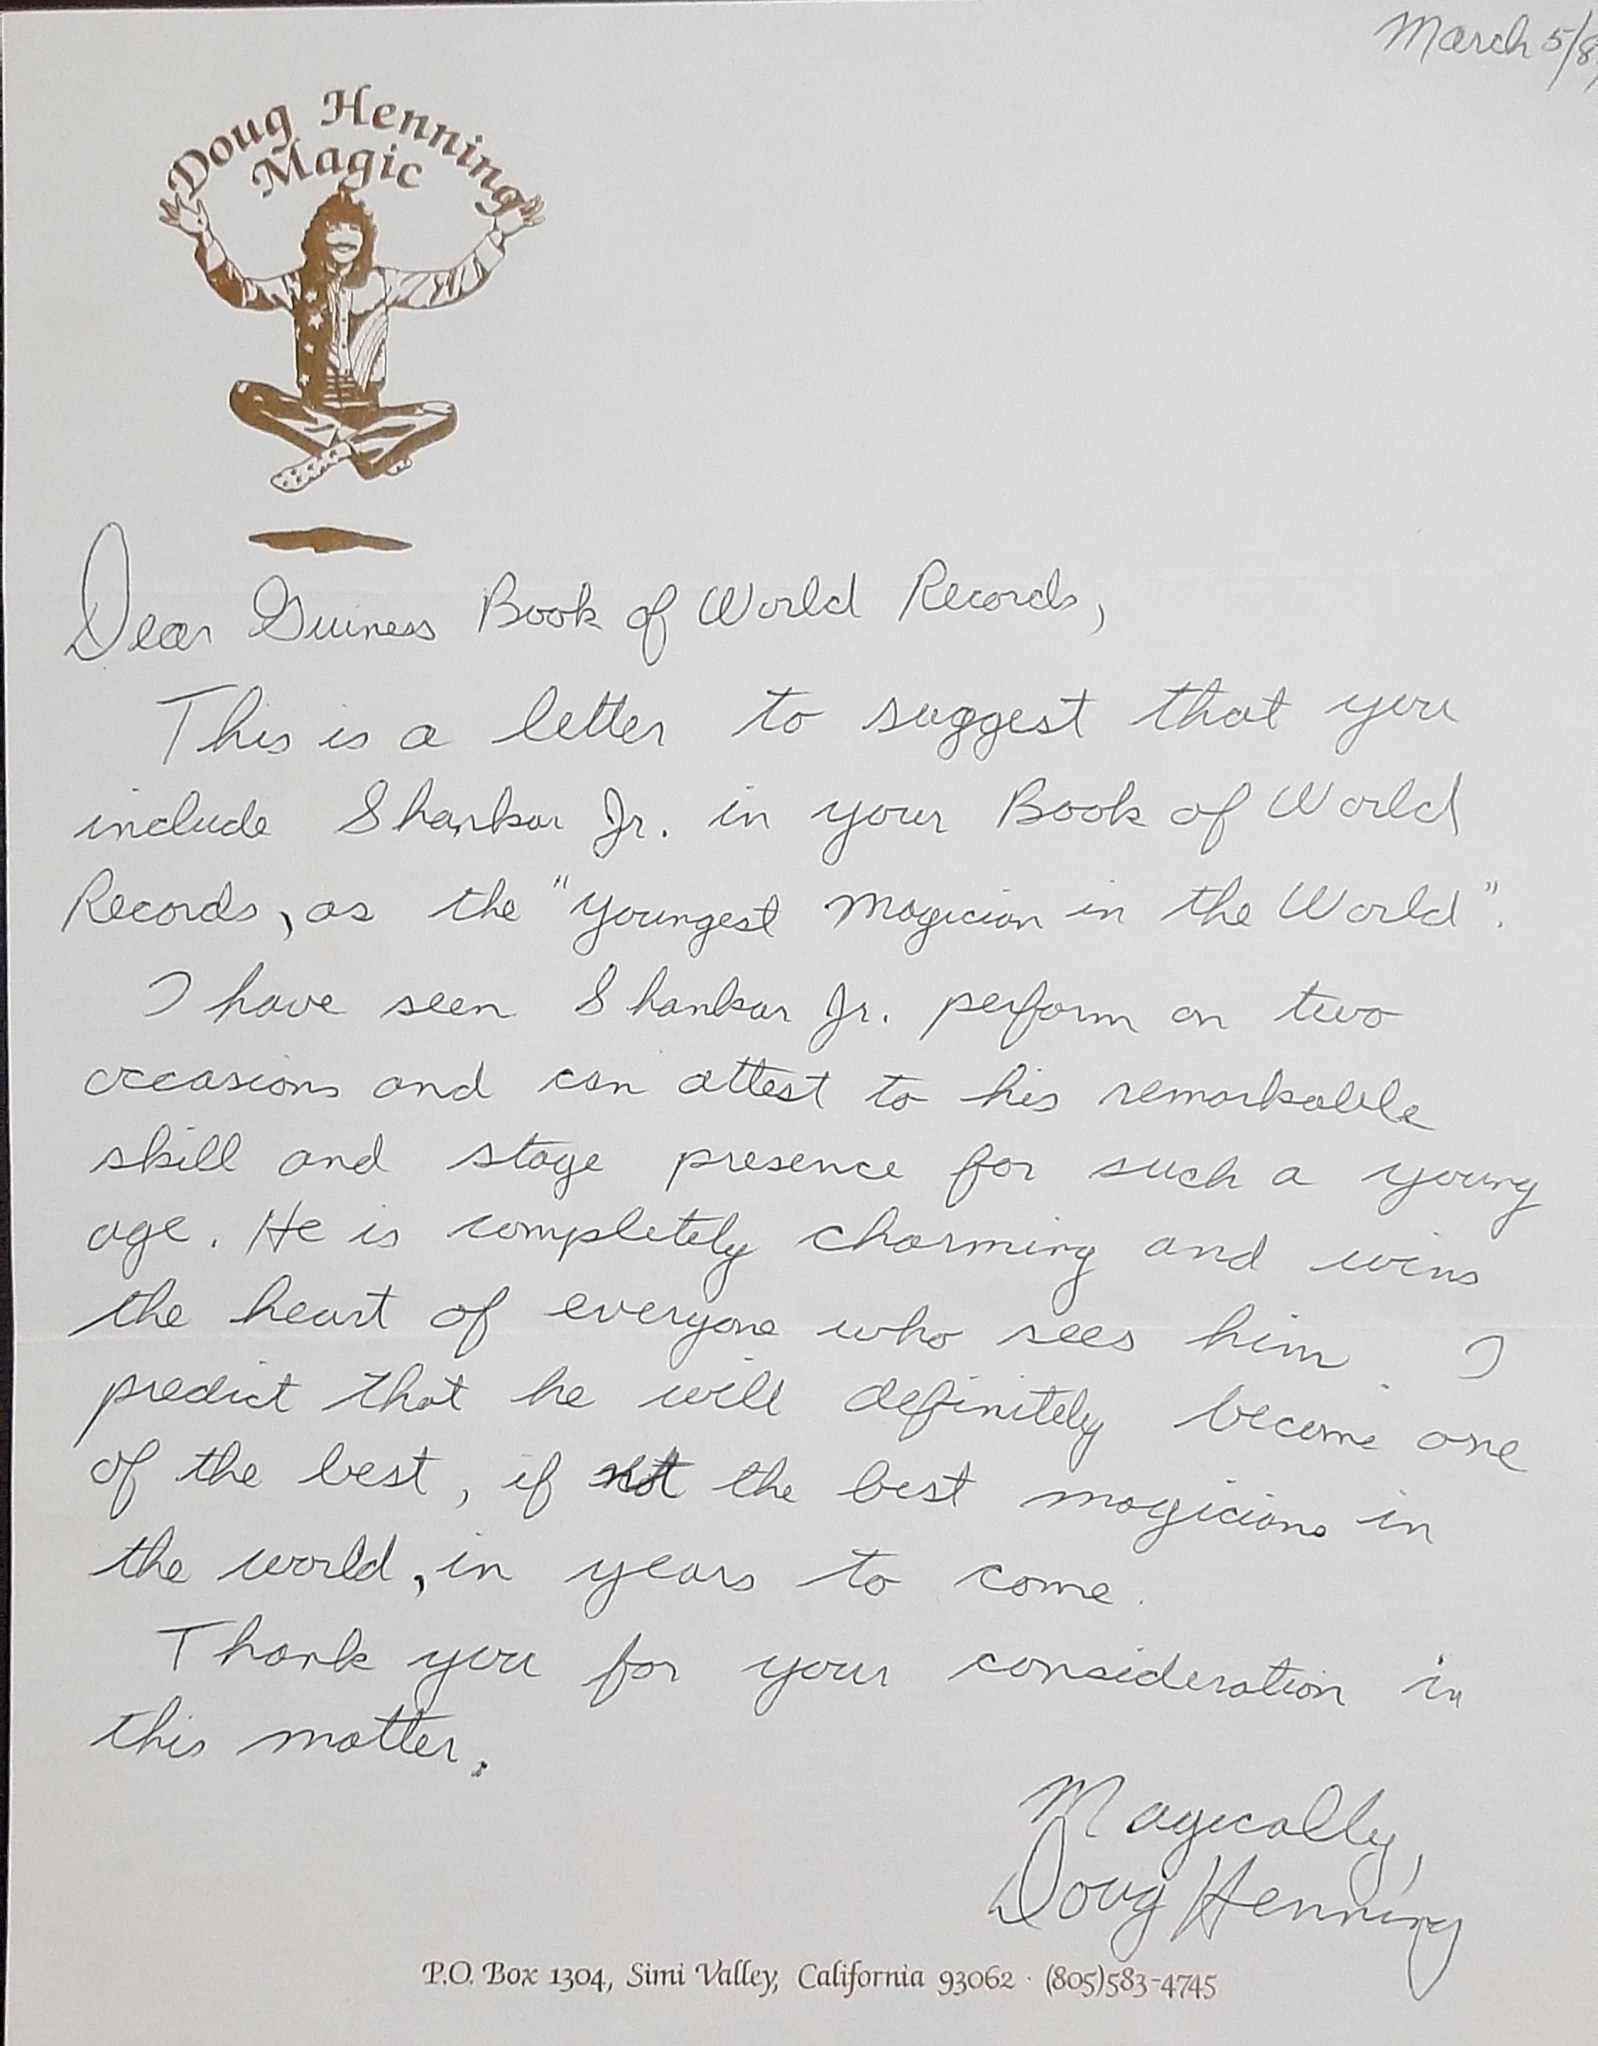 March 5/8
Doug Henning
Magic
Dear Guiness Book of World Records,
This is a letter to suggest that you
include Shankar Jr. in your Book of World
Records, as the "youngest magician in the World".
I have seen Shankar Jr. perform on two
occasions and can attest to his remarkable
skill and stage presence for such a young
age. He is completely charming and wins
the heart of everyone who sees him. I
predict that he will definitely become one
of the best, if not the best magicians in
the world, in years to come.
Thank you for your consideration in
this matter.
Magically,
Doug Henning
P.O. Box 1304, Simi Valley, California 93062 · (805)583-4745